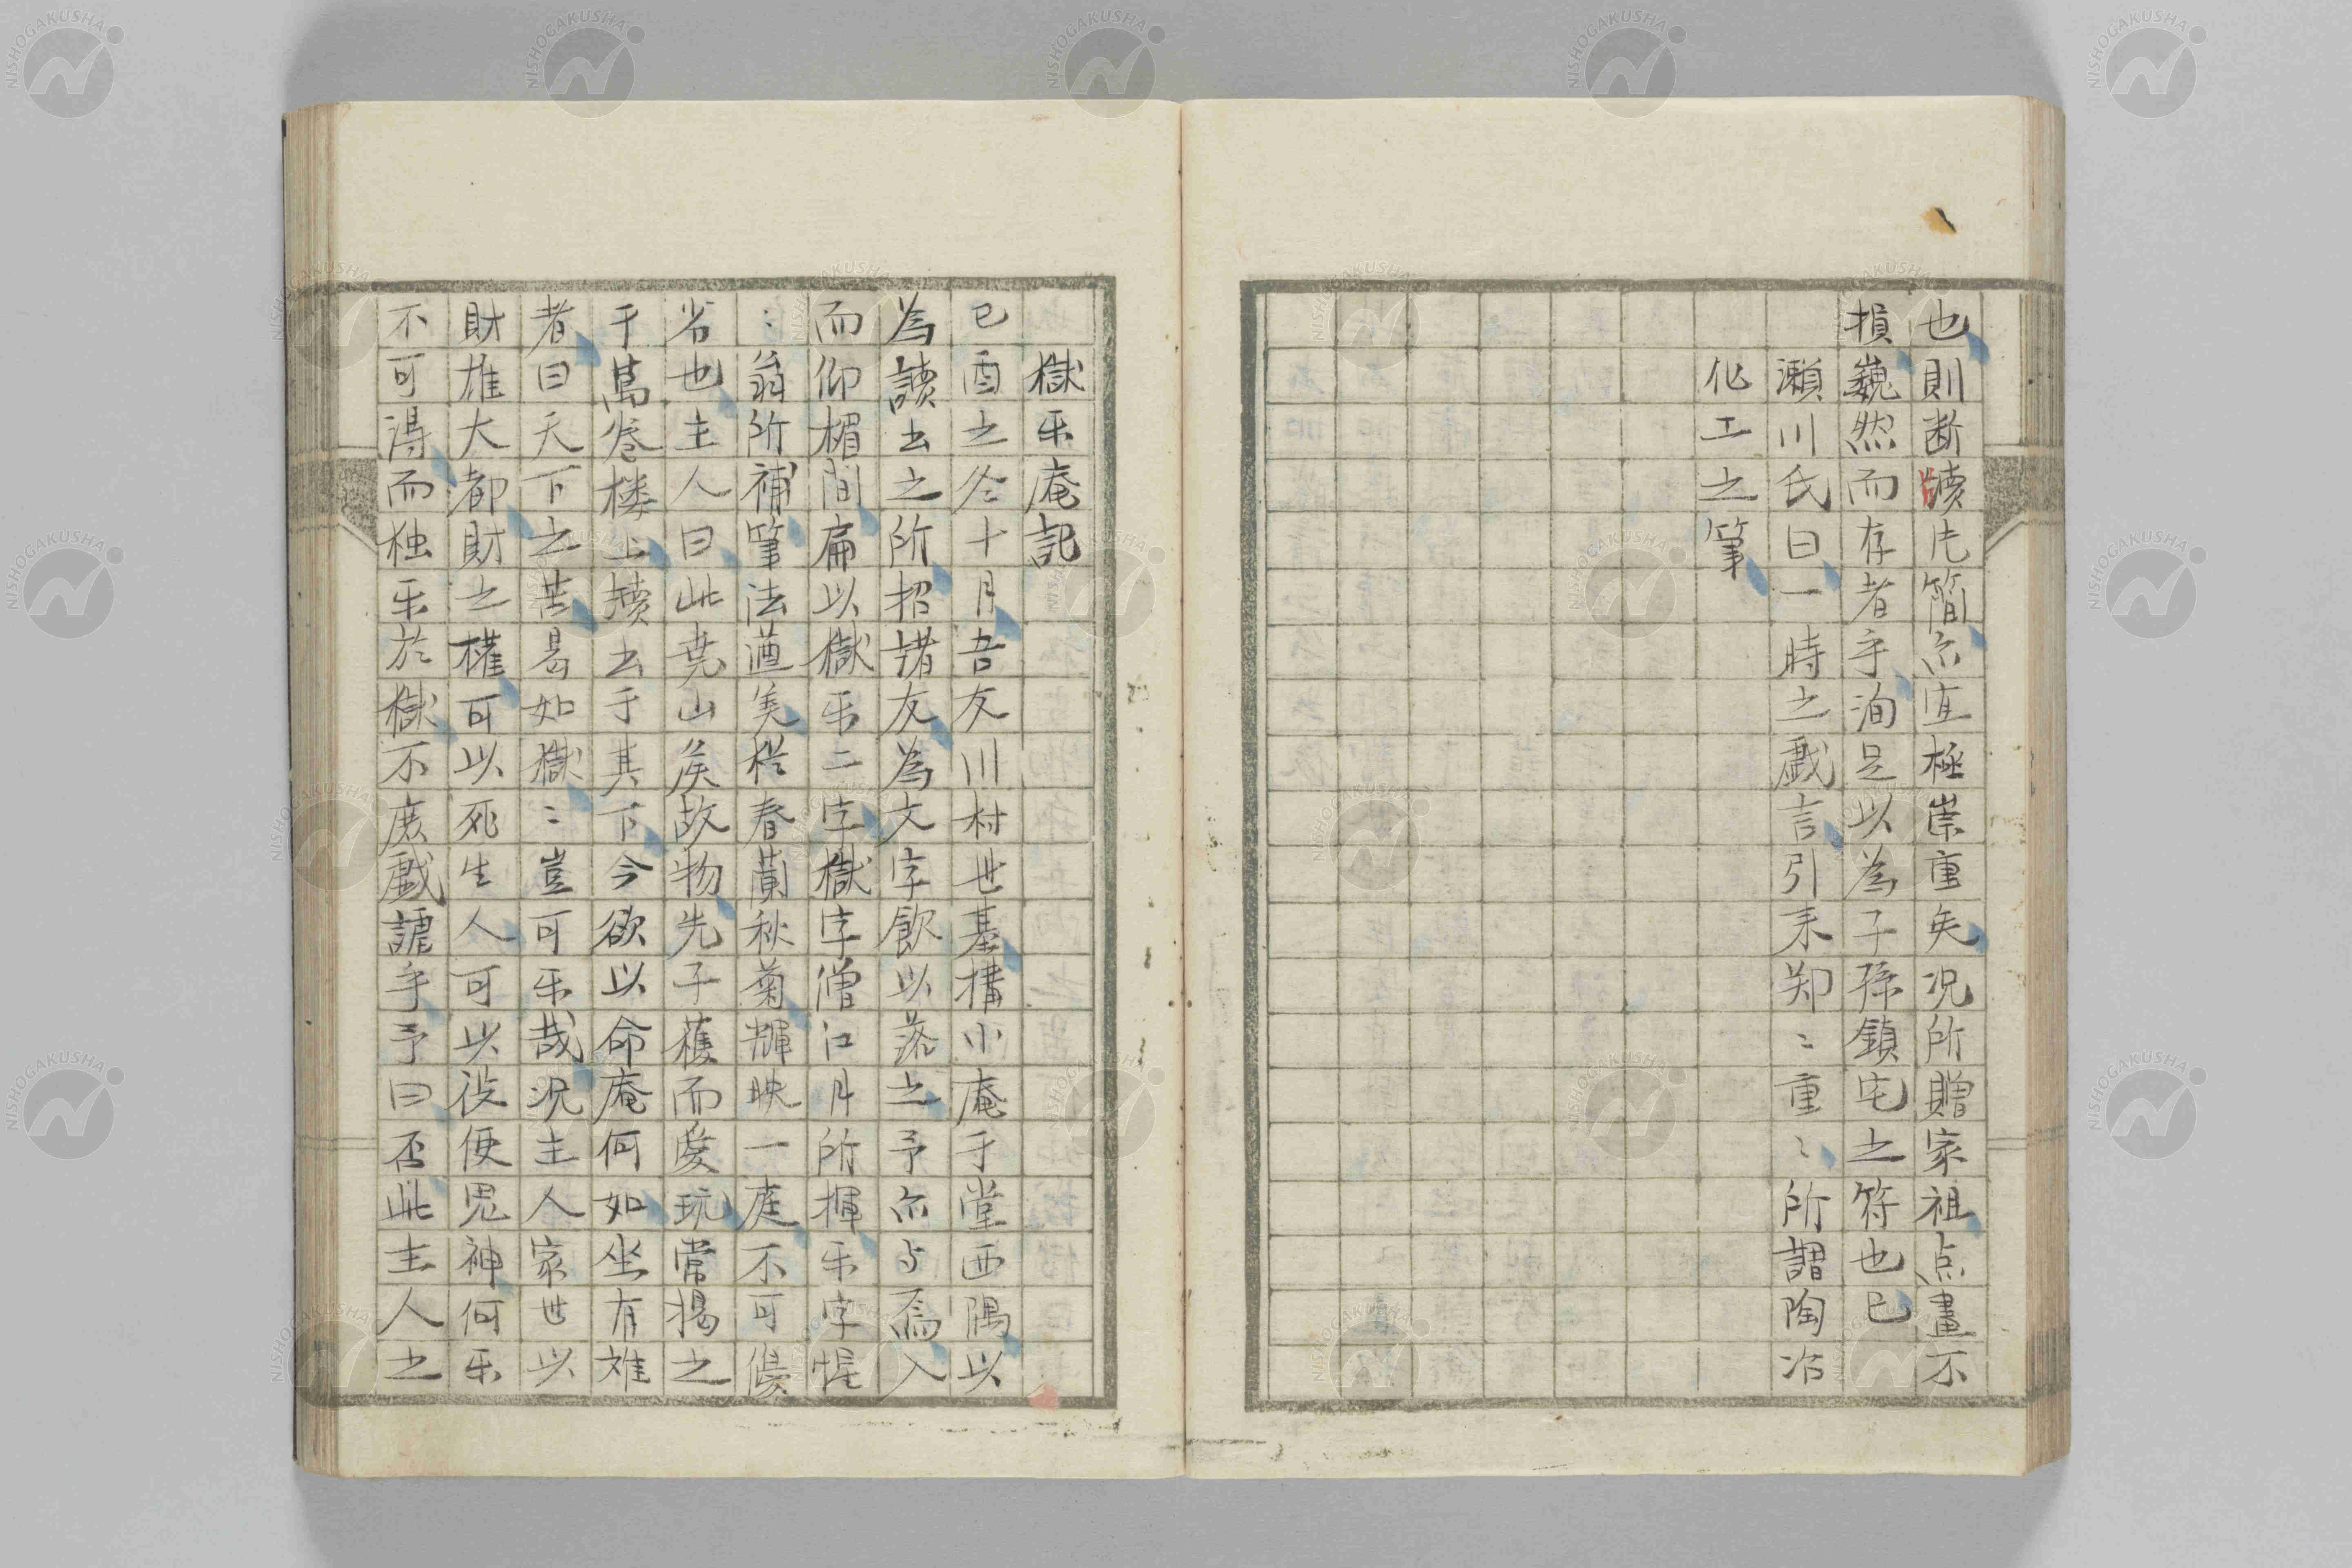 也則断牘片簡亦宜極崇重矣况所贈家祖点畫不
損巍然而存者乎洵足以為子孫鎮宅之符也已
瀬川氏曰一時之戯言引来鄭〻重〻所謂陶冶
化工之筆
獄乐庵記
己酉之冬十月吾友川村世基構小庵于堂西隅以
為讀书之所招諸友為文字飲以落之予亦与焉入
而仰楣間扁以獄乐二字獄字僧江月所揮乐字惺
〻翁所補筆法遒美從春蘭秋菊輝映一庭不可偏
省也主人曰此堯山矦故物先子獲而愛玩常揭之
于萬卷楼上讀书于其下今欲以命庵何如坐有难
者曰天下之苦曷如獄〻豈可乐哉况主人家世以
財雄大都財之權可以死生人可以役使鬼神何乐
不可得而独乐於獄不庶戯謔乎予曰否此主人之